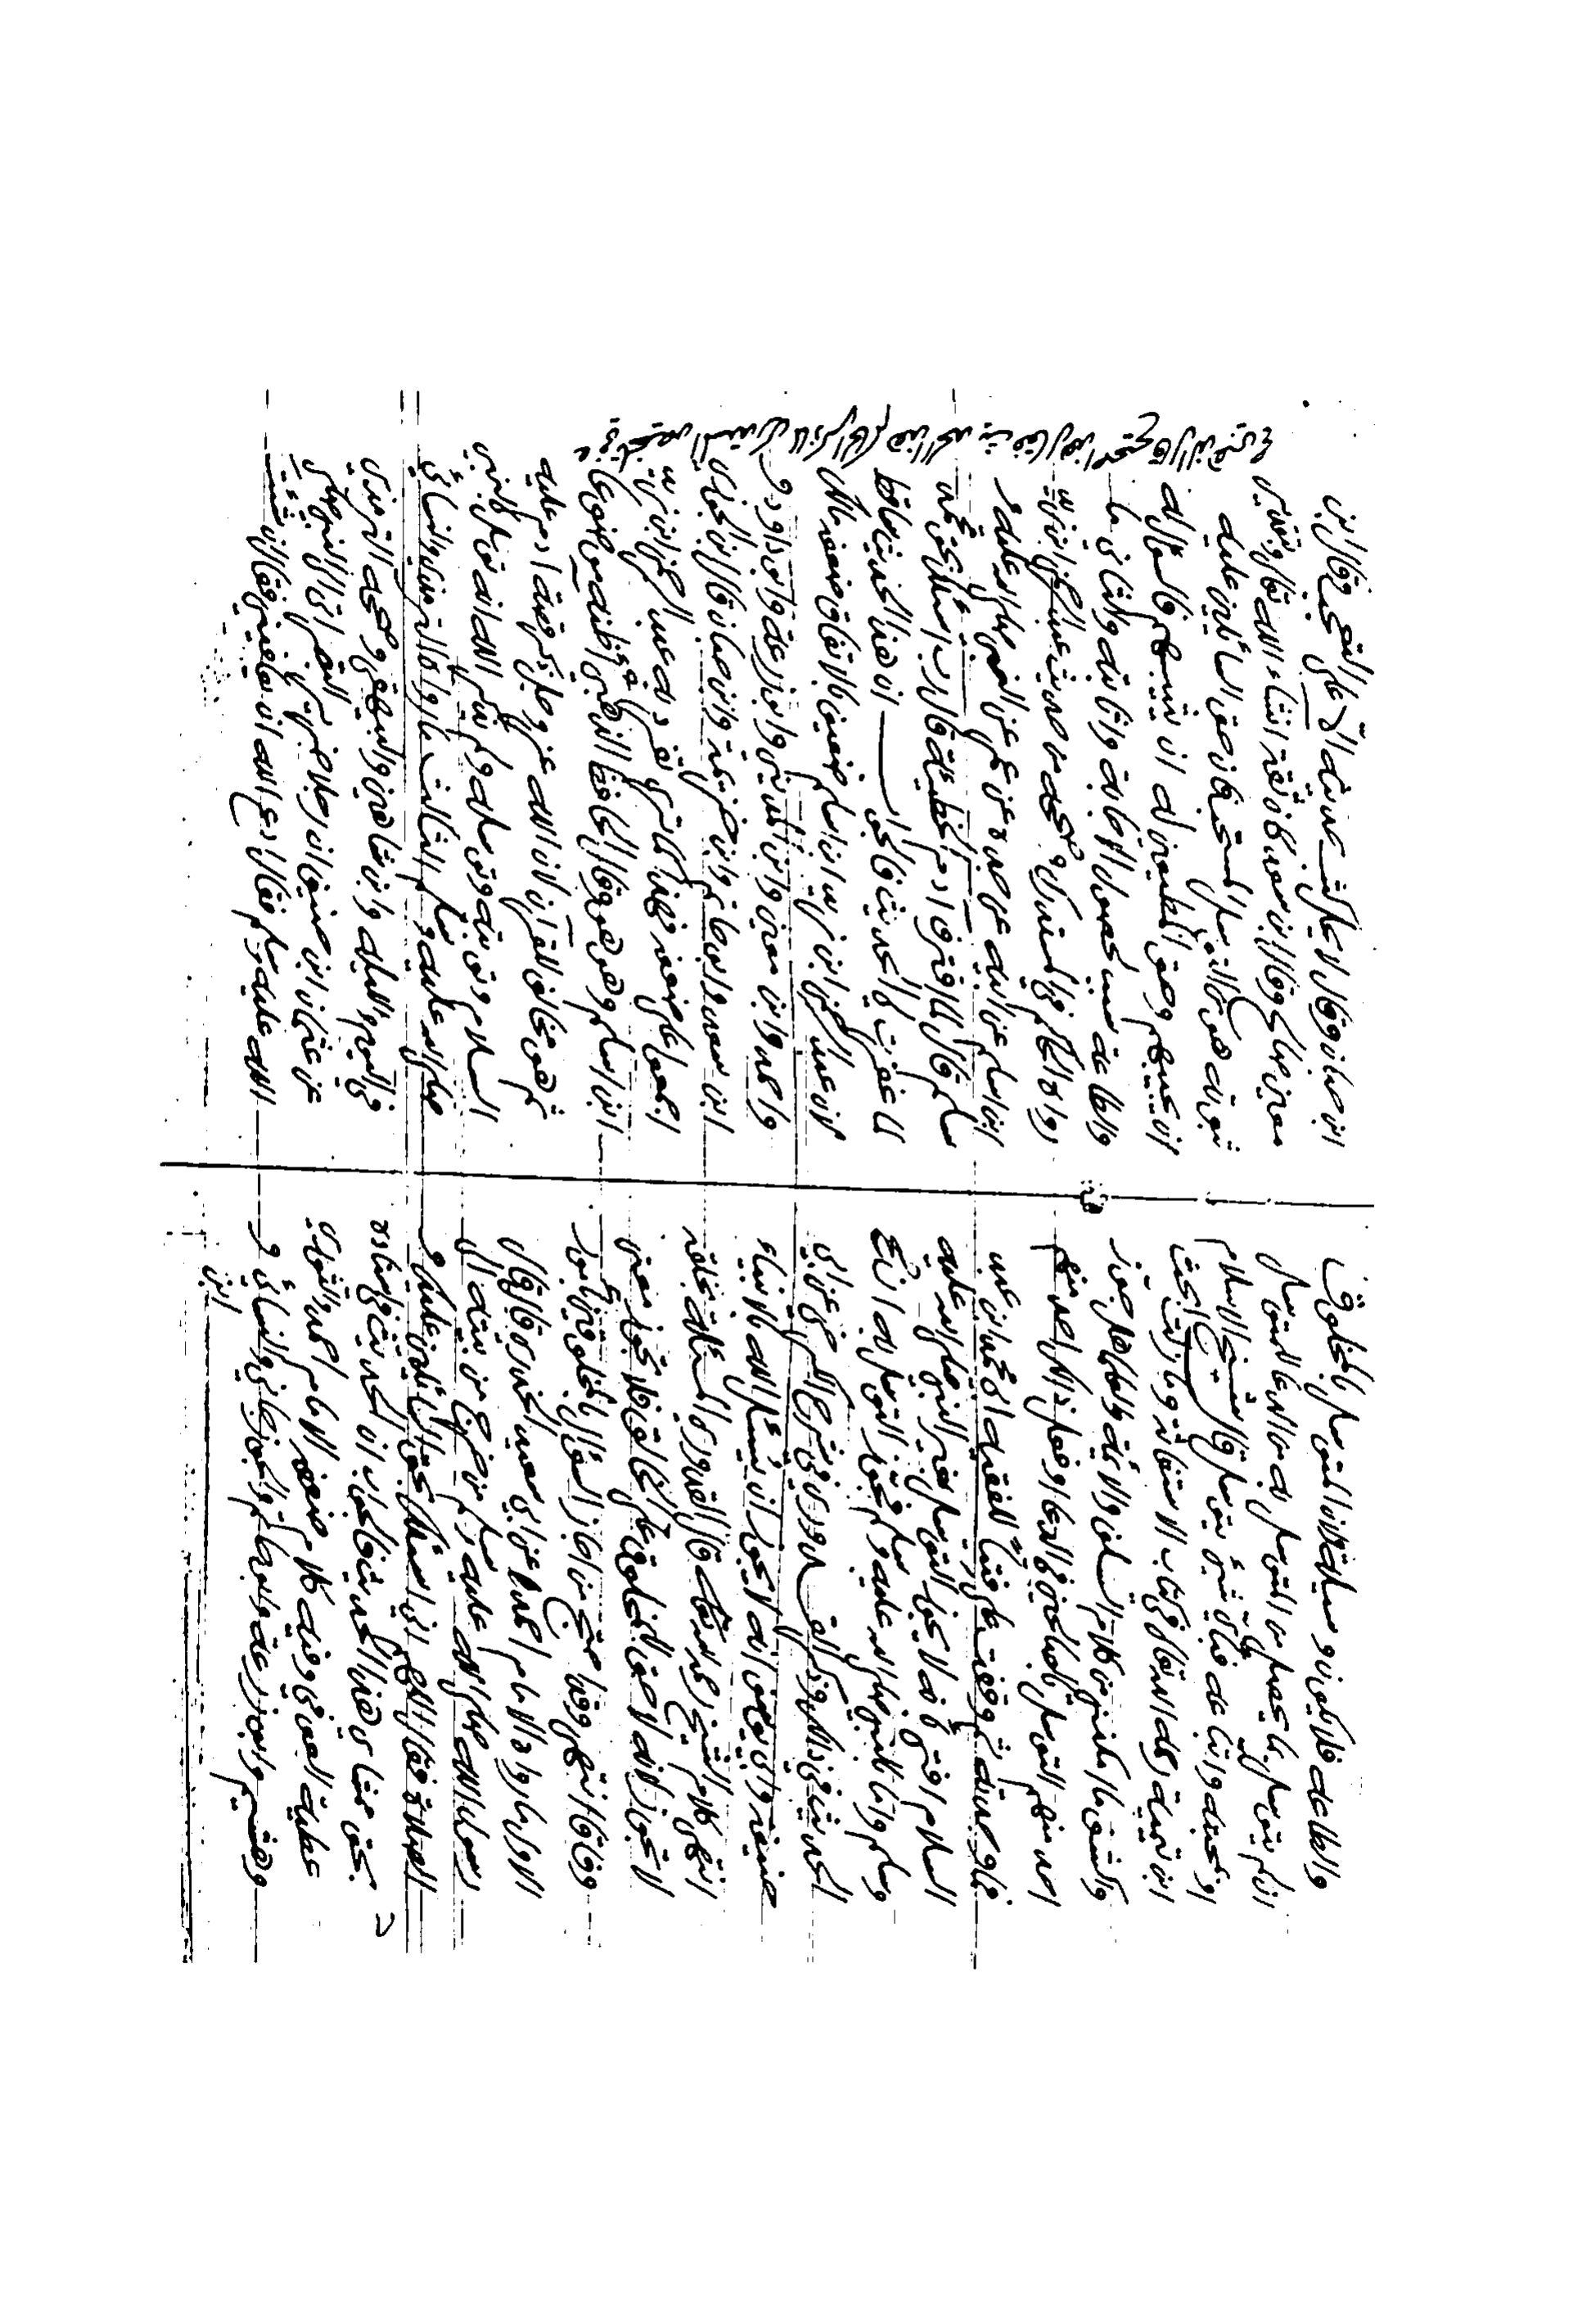 والطاعة فلا يكون وسيلة لان التوسل بالمخلوق
او بحقه واتباعه فبأي شيء يتوسل قال شيخ الاسلام
ابن تيمية رحمه الله تعالى في كتاب الاستغاثة وما زلت ابحث
واكشف ما امكنني من كلام السلف والائمة والعلماء هل جوز
احد منهم التوسل بالصالحين في الدعاء او فعل ذلك احد منهم
فما وجدته ثم وقفت على فتيا للفقيه ابي محمد بن عبد
السلام افتى بانه لا يجوز التوسل بغير النبي صلى الله عليه
وسلم واما بالنبي صلى الله عليه وسلم فجوز التوسل به ان صح
الحديث في ذلك وذكر القدوري في شرح الكرخي عن ابي
حنيفة وابي يوسف انه لا يجوز ان يسأل الله بالانبياء
انتهى كلام الشيخ رحمه الله قال القدوري المسألة بخلقه
لا تجوز لانه لا حق للمخلوق على الخالق فلا يجوز يعني
وفاقا انتهى السؤال بالمخلوقين
الاول ما رواه الامام احمد عن ابي سعيد الخدري قال قال
رسول الله صلى الله عليه وسلم من خرج من بيته الى
الصلاة فقال اللهم اني اسألك بحق السائلين عليك و
بحق ممشاي هذا الحديث فالجواب ان الحديث في اسناده
عطية العوفي وفيه كلام ضعفه الامام احمد والثوري
وهشيم وابو زرعة وابو حاتم والجوزجاني والنسائي و
ابن
ابن حبان وقال لا يحل كتب حديثه الا على التعجب وقال ابن
معين صالح وقال ابن سعد كان ثقة ان شاء الله قال وبتقدير
ثبوته هو من فان حق السائلين عليه
ان يجيبهم وحق المطيعين له ان يثيبهم فالسؤال له
والطاعة سبب لحصول اجابته واثابته والثاني ما
رواه الحاكم في المستدرك من حديث عبد الرحمن بن زيد
ابن اسلم عن ابيه عن جده عن عمر عن النبي صلى الله عليه و
سلم قال لما اقترف آدم الخطيئة قال يا رب اسألك بحق محمد
الا غفرت لي الحديث فالجواب ان هذا الحديث ساقط
لان عبد الرحمن بن زيد بن اسلم ضعيف بالاتفاق ضعفه مالك
واحمد وابن معين وابن المديني وابو زرعة وابو داود و
ابن سعد وابو حاتم وابن خزيمة وابن حبان وقال ابن الجوزي
اجمعوا على ضعفه فهذا ما تفرد به عبد الرحمن بن زيد
ابن اسلم وهو هو وقال الحافظ الذهبي اظنه موضوعا
ثم هو مخالف للقرآن لان الله عز وجل ذكر قصة آدم عليه
السلام وتوبته ولم يذكر الله انه توسل بالنبي
صلى الله عليه وسلم الثالث ما رواه الترمذي والنسائي
في اليوم والليلة وابن شاهين والبيهقي وصححه الترمذي
عن عثمان بن حنيف ان رجلا ضرير البصر اتى النبي صلى
الله عليه وسلم فقال ادع الله ان يعافيني فقال ان شئت
في تلخيص المستدرك لما ذكر الحاكم هذا الحديث فقال هذا صحيح قال الذهبي